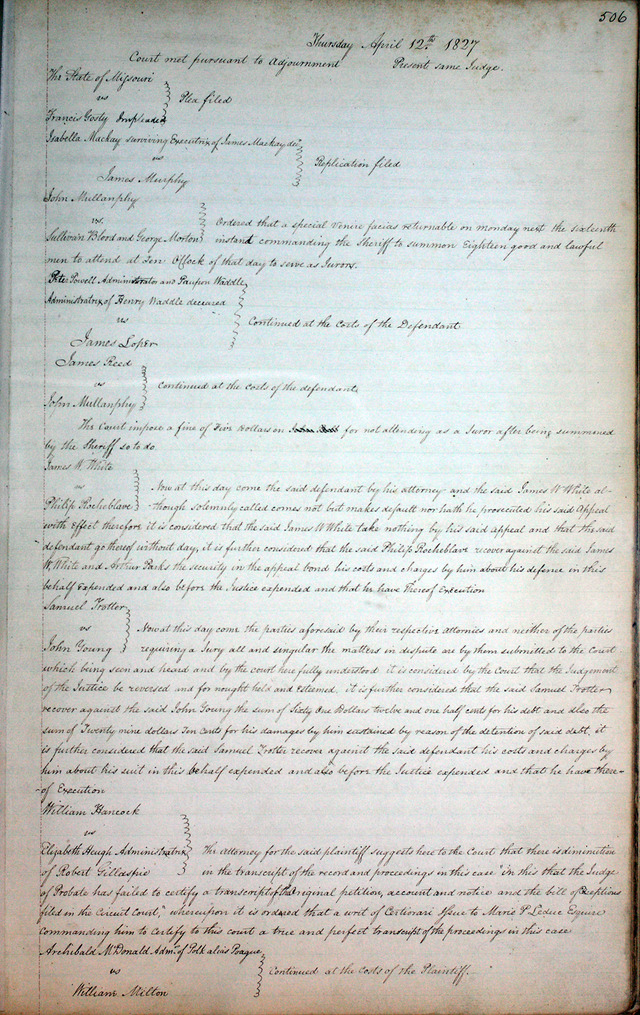 506
Thursday April 12th 1827
Court met pursuant to Adjournment Present same Judge.
The State of Missouri
vs Plea filed
Francis Gosly Impleaded
Isabella Mackay surviving Executrix of James Mackay decd
vs Replication filed
James Murphy
John Mullanphy
vs. Ordered that a special venire facias returnable on monday next the sixteenth
Sullivan Blood and George Morton instant commanding the Sheriff to summon Eighteen good and lawful
men to attend at Ten OClock of that day to serve as Jurors.
Powell Administrator and Waddle
Administratrix of Henry Waddle deceased
vs Continued at the Costs of the Defendant
James Loper
James Reed
vs Continued at the Costs of the defendant.
John Mullanphy
The Court impose a fine of Five Dollars on for not attending as a Juror after being summoned
by the Sheriff so to do
James W. White
vs Now at this day come the said defendant by his attorney and the said James W White al-
Philip Rocheblave though solemnly called comes not but makes default nor hath he prosecuted his said Appeal
with Effect therefore it is considered that the said James W White take nothing by his said appeal and that the said
defendant go thereof without day, it is further considered that the said Philip Rocheblave recover against the said James
W. White and Arthur Parks the security in the appeal bond his costs and charges by him about his defence in this
behalf expended and also before the Justice expended and that he have thereof Execution
Samuel Trotter
vs Now at this day come the parties aforesaid by their respective Attornies and neither of the parties
John Young requiring a Jury all and singular the matters in dispute are by them submitted to the Court
which being seen and heard and by the court here fully understood it is considered by the Court that the Judgement
of the Justice be reversed and for nought held and esteemed, it is further considered that the said Samuel Trotter
recover against the said John Young the sum of Sixty One Dollars twelve and one half cents for his debt and also the
sum of Twenty nine dollars Ten Cents for his damages by him sustained by reason of the detention of said debt, it
is further considered that the said Samuel Trotter recover against the said defendant his costs and charges by
him about his suit in this behalf expended and also before the Justice expended and that he have there-
of Execution
William Hancock
vs
Elizabeth Heugh Administratrix The Attorney for the said plaintiff suggests here to the Court that there is diminution
of Robert Gillaspie in the transcript of the record and proceedings in this case "in this that the Judge
of Probate has failed to certify a transcript of the original petition, account and notice and the bill of Exceptions
filed in the Circuit Court," whereupon it is ordered that a writ of Certiorari Issue to Marie P. Leduc Esquire
commanding him to certify to this court a true and perfect transcript of the proceedings in this case
Archibald McDonald Admr. of Polk alias Poague
vs Continued at the Costs of the Plaintiff.
William Milton